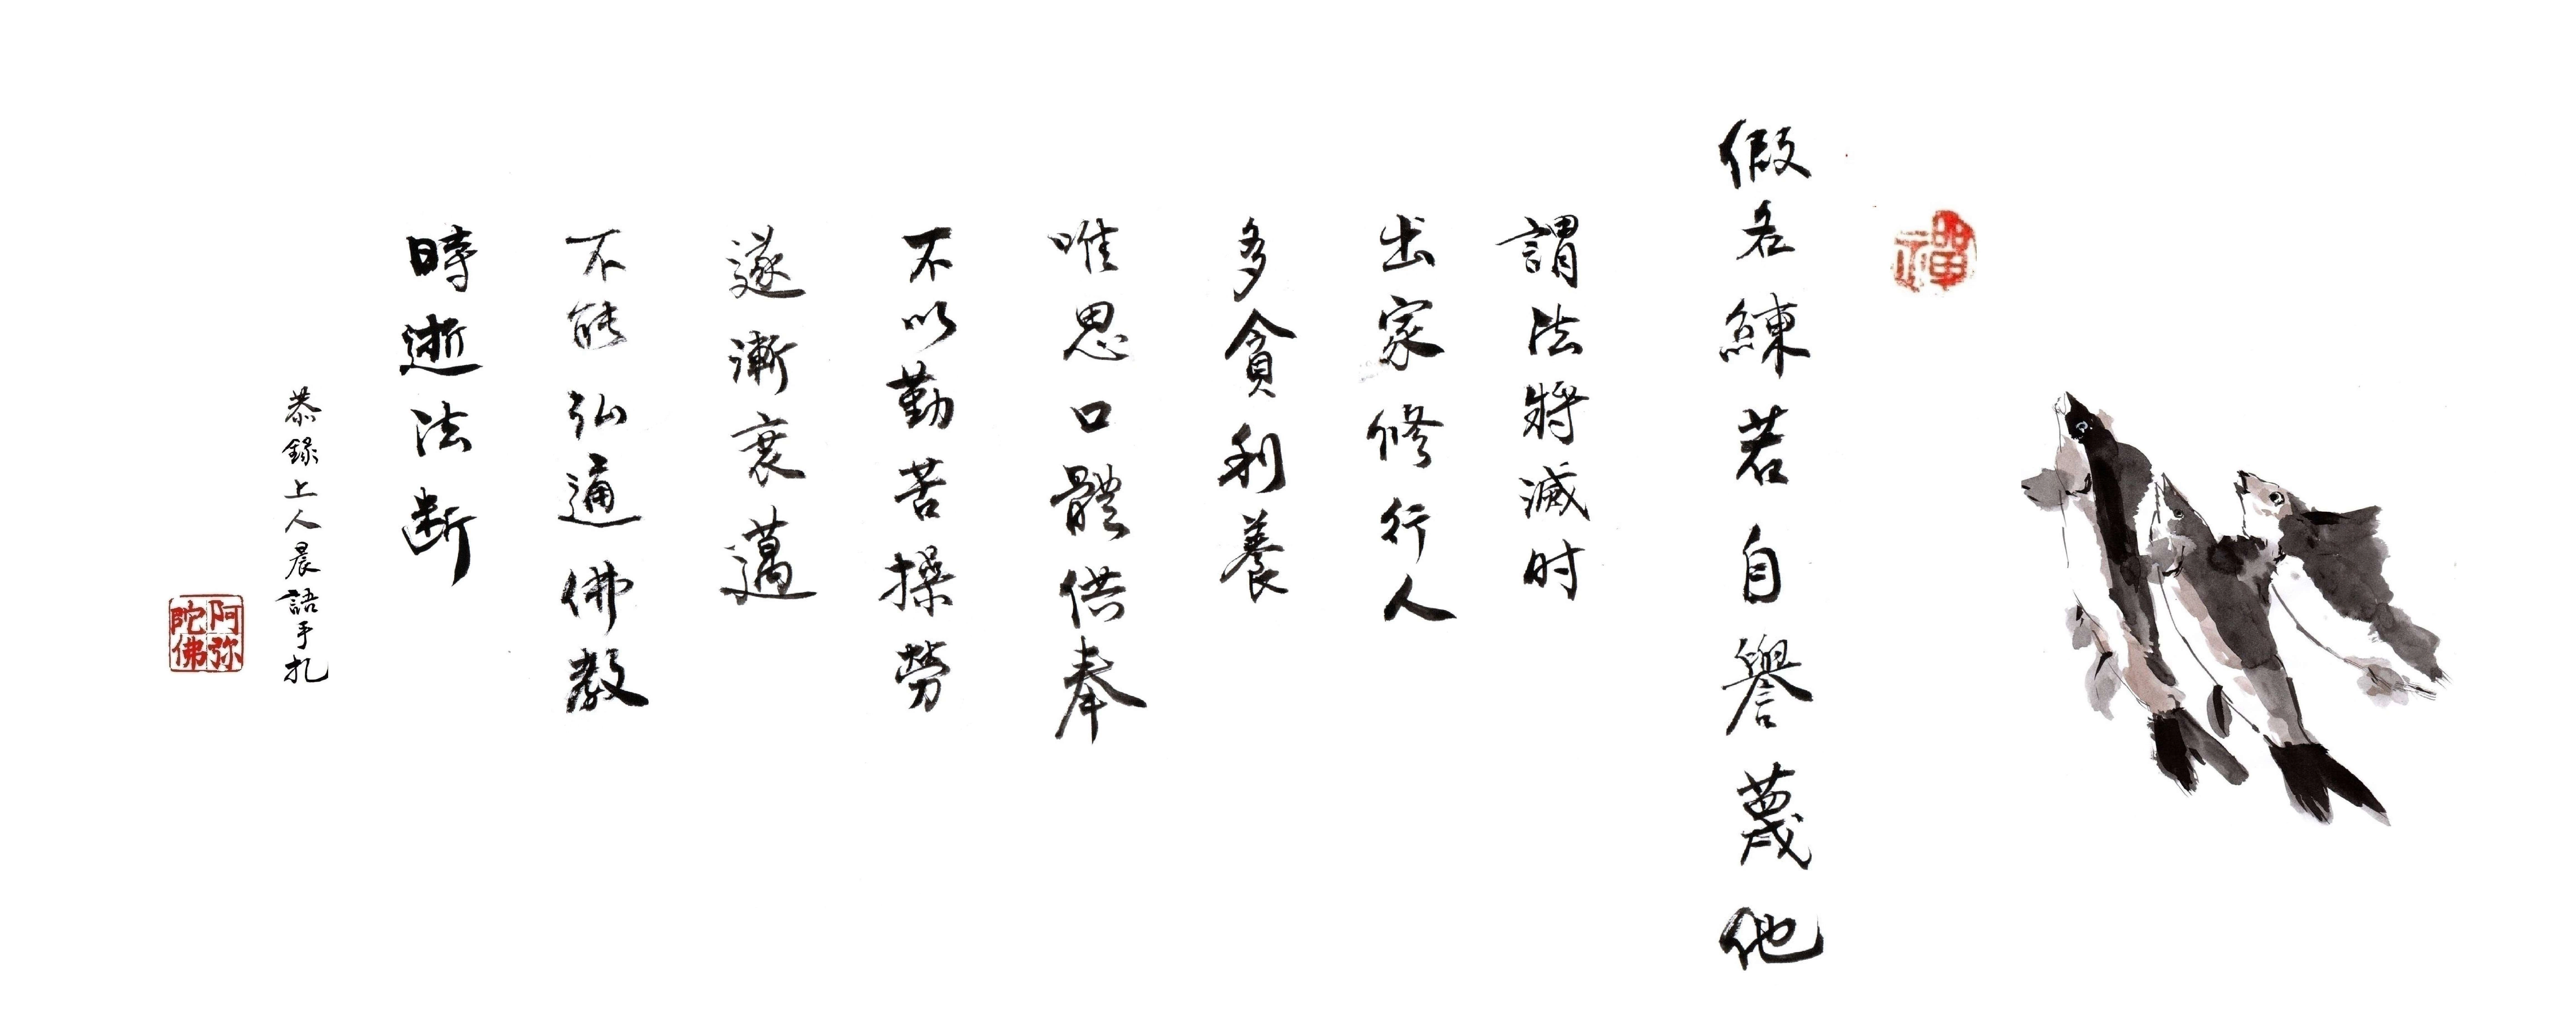 禪
假名練若自譽蔑他
謂法將滅时
出家修行人
多貪利養
唯思口體供奉
不以勤苦操勞
遂漸衰邁
不能弘通佛教
時逝法断
恭錄上人晨語手扎
阿弥
陀佛